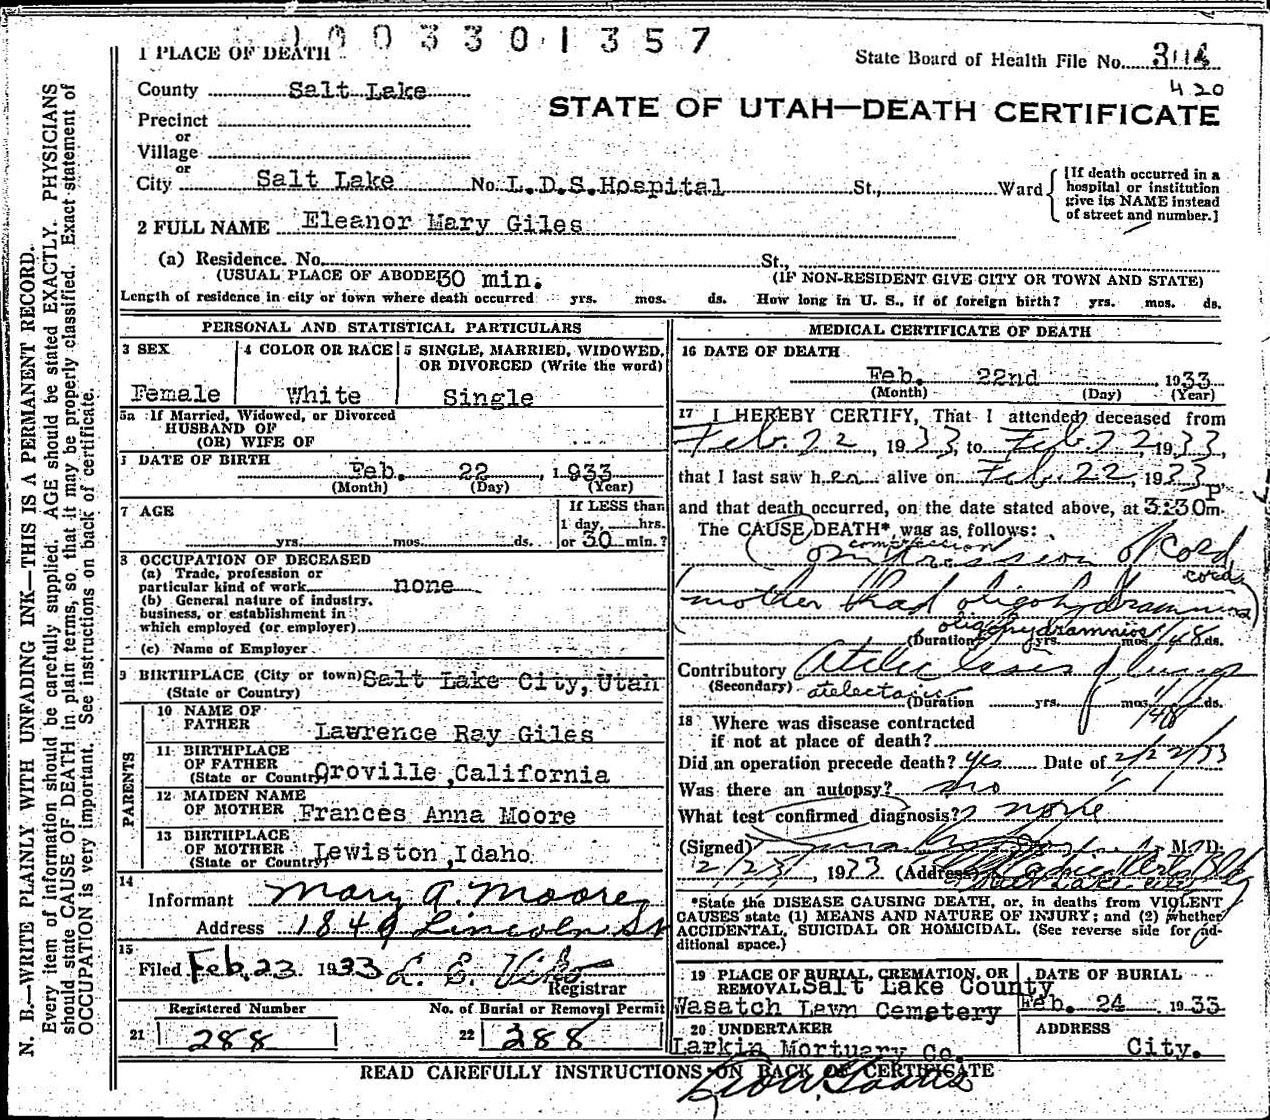 1003301357
1 PLACE OF DEATH
State Board of Health File No.
420
County Salt Lake
STATE OF UTAH—DEATH CERTIFICATE
Precinct
or
Village
or
City Salt Lake No. L.D.S. Hospital St., Ward
[If death occurred in a
hospital or institution
give its NAME instead
of street and number.]
2 FULL NAME Eleanor Mary Giles
(a) Residence. No. St.,
(USUAL PLACE OF ABODE) 30 min. (IF NON-RESIDENT GIVE CITY OR TOWN AND STATE)
Length of residence in city or town where death occurred yrs. mos. ds. How long in U. S., if of foreign birth? yrs. mos. ds.
PERSONAL AND STATISTICAL PARTICULARS
3 SEX
Female
4 COLOR OR RACE
White
5 SINGLE, MARRIED, WIDOWED,
OR DIVORCED (Write the word)
Single
5a If Married, Widowed, or Divorced
HUSBAND OF
(OR) WIFE OF
DATE OF BIRTH
Feb. 22 1933
(Month) (Day) (Year)
7 AGE
yrs. mos. ds.
If LESS than
1 day, hrs.
or 30 min.?
8 OCCUPATION OF DECEASED
(a) Trade, profession or
particular kind of work none
(b) General nature of industry,
business, or establishment in
which employed (or employer)
(c) Name of Employer
9 BIRTHPLACE (City or town) Salt Lake City, Utah
(State or Country)
PARENTS
10 NAME OF
FATHER Lawrence Ray Giles
11 BIRTHPLACE
OF FATHER
(State or Country) Oroville, California
12 MAIDEN NAME
OF MOTHER Frances Anna Moore
13 BIRTHPLACE
OF MOTHER
(State or Country) Lewiston, Idaho
14
Informant Mary A. Moore
Address 1840 Lincoln St
15
Filed Feb. 23 1933 L. E. Viko
Registrar
Registered Number
21 288
No. of Burial or Removal Permit
22 288
MEDICAL CERTIFICATE OF DEATH
16 DATE OF DEATH
Feb. 22nd 1933
(Month) (Day) (Year)
17 I HEREBY CERTIFY, That I attended deceased from
Feb. 22, 1933, to Feb 22, 1933,
that I last saw her alive on Feb 22, 1933
and that death occurred, on the date stated above, at 3:30 P m.
The CAUSE DEATH* was as follows:
compression
Compression of Cord
cord
mother had oligohydramnios
oligohydramnios
(Duration) yrs. mos. 1/48 ds.
Contributory Atelectasis of lungs
(Secondary) atelectasis
(Duration yrs. mos. 1/48 ds.
18 Where was disease contracted
if not at place of death?
Did an operation precede death? yes Date of 2/22/33
Was there an autopsy? no
What test confirmed diagnosis? none
(Signed) M. D.
2/23, 1933 (Address)
Salt Lake City
*State the DISEASE CAUSING DEATH, or, in deaths from VIOLENT
CAUSES state (1) MEANS AND NATURE OF INJURY; and (2) whether
ACCIDENTAL, SUICIDAL OR HOMICIDAL. (See reverse side for ad-
ditional space.)
19 PLACE OF BURIAL, CREMATION, OR
REMOVAL Salt Lake County
Wasatch Lawn Cemetery
DATE OF BURIAL
Feb. 24 1933
20 UNDERTAKER
Larkin Mortuary Co.
ADDRESS
City.
READ CAREFULLY INSTRUCTIONS ON BACK OF CERTIFICATE
N. B.—WRITE PLAINLY WITH UNFADING INK—THIS IS A PERMANENT RECORD.
Every item of information should be carefully supplied. AGE should be stated EXACTLY. PHYSICIANS
should state CAUSE OF DEATH in plain terms, so that it may be properly classified. Exact statement of
OCCUPATION is very important. See instructions on back of certificate.